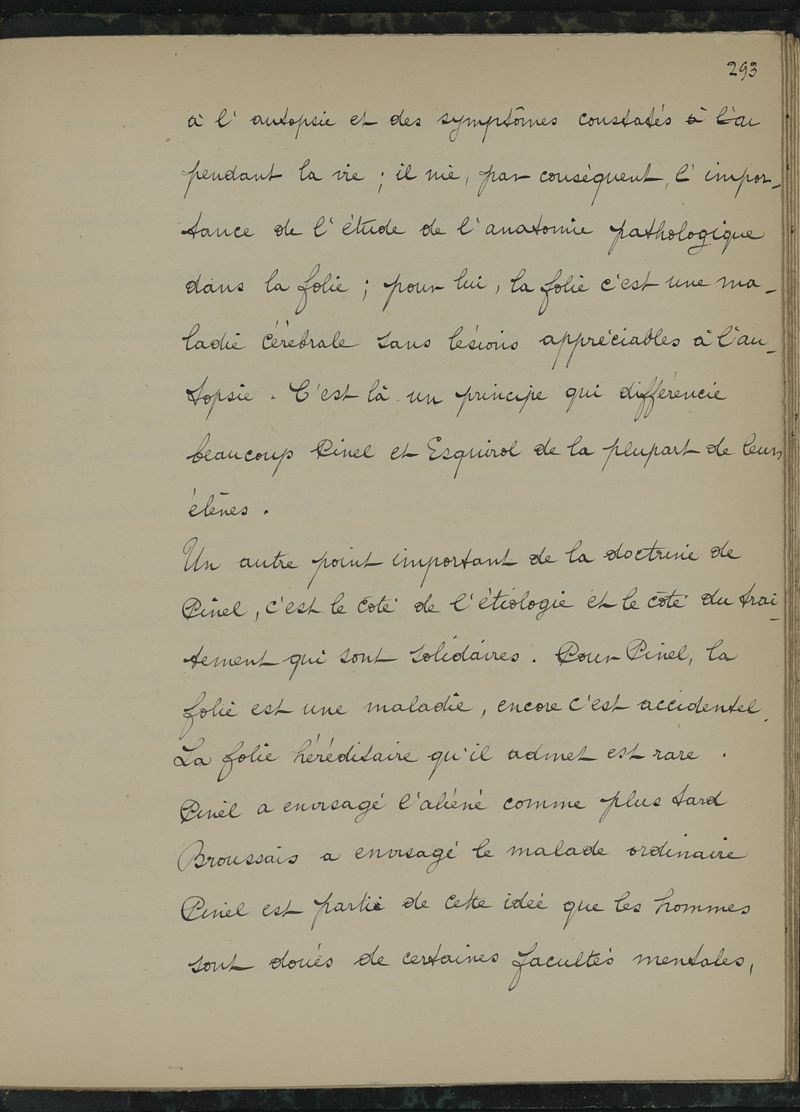 293
à l' autopsie et des symptômes constatés à l'au
pendant la vie ; il nie, par conséquent, l' impor-
tance de l' étude de l'anatomie pathologique
dans la folie ; pour lui, la folie c'est une ma-
ladie cérébrale sans lésions appréciables à l'au-
topsie . C'est là un principe qui différencie
beaucoup Pinel et Esquirol de la plupart de leurs
élèves .
Un autre point important de la doctrine de
Pinel, c'est le coté de l'étiologie et le coté du trai-
tement qui sont solidaires . Pour Pinel, la
folie est une maladie, encore c'est accidentel.
La folie héréditaire qu'il admet est rare .
Pinel a envisagé l'aliéné comme plus tard
Broussais a envisagé le malade ordinaire
Pinel est partie de cette idée que les hommes
sont doués de certaines facultés mentales,